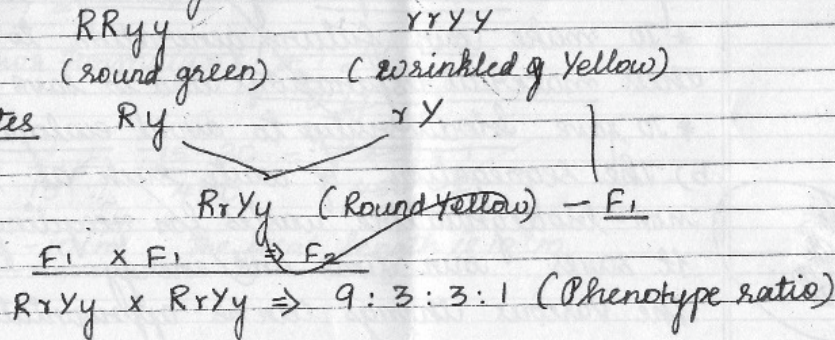 RRyy rrYY
(round green) (wrinkled & Yellow)
tes Ry rY
RrYy (Round Yellow) – F1
F1 x F1 ⇒ F2
RrYy x RrYy ⇒ 9:3:3:1 (Phenotype ratio)